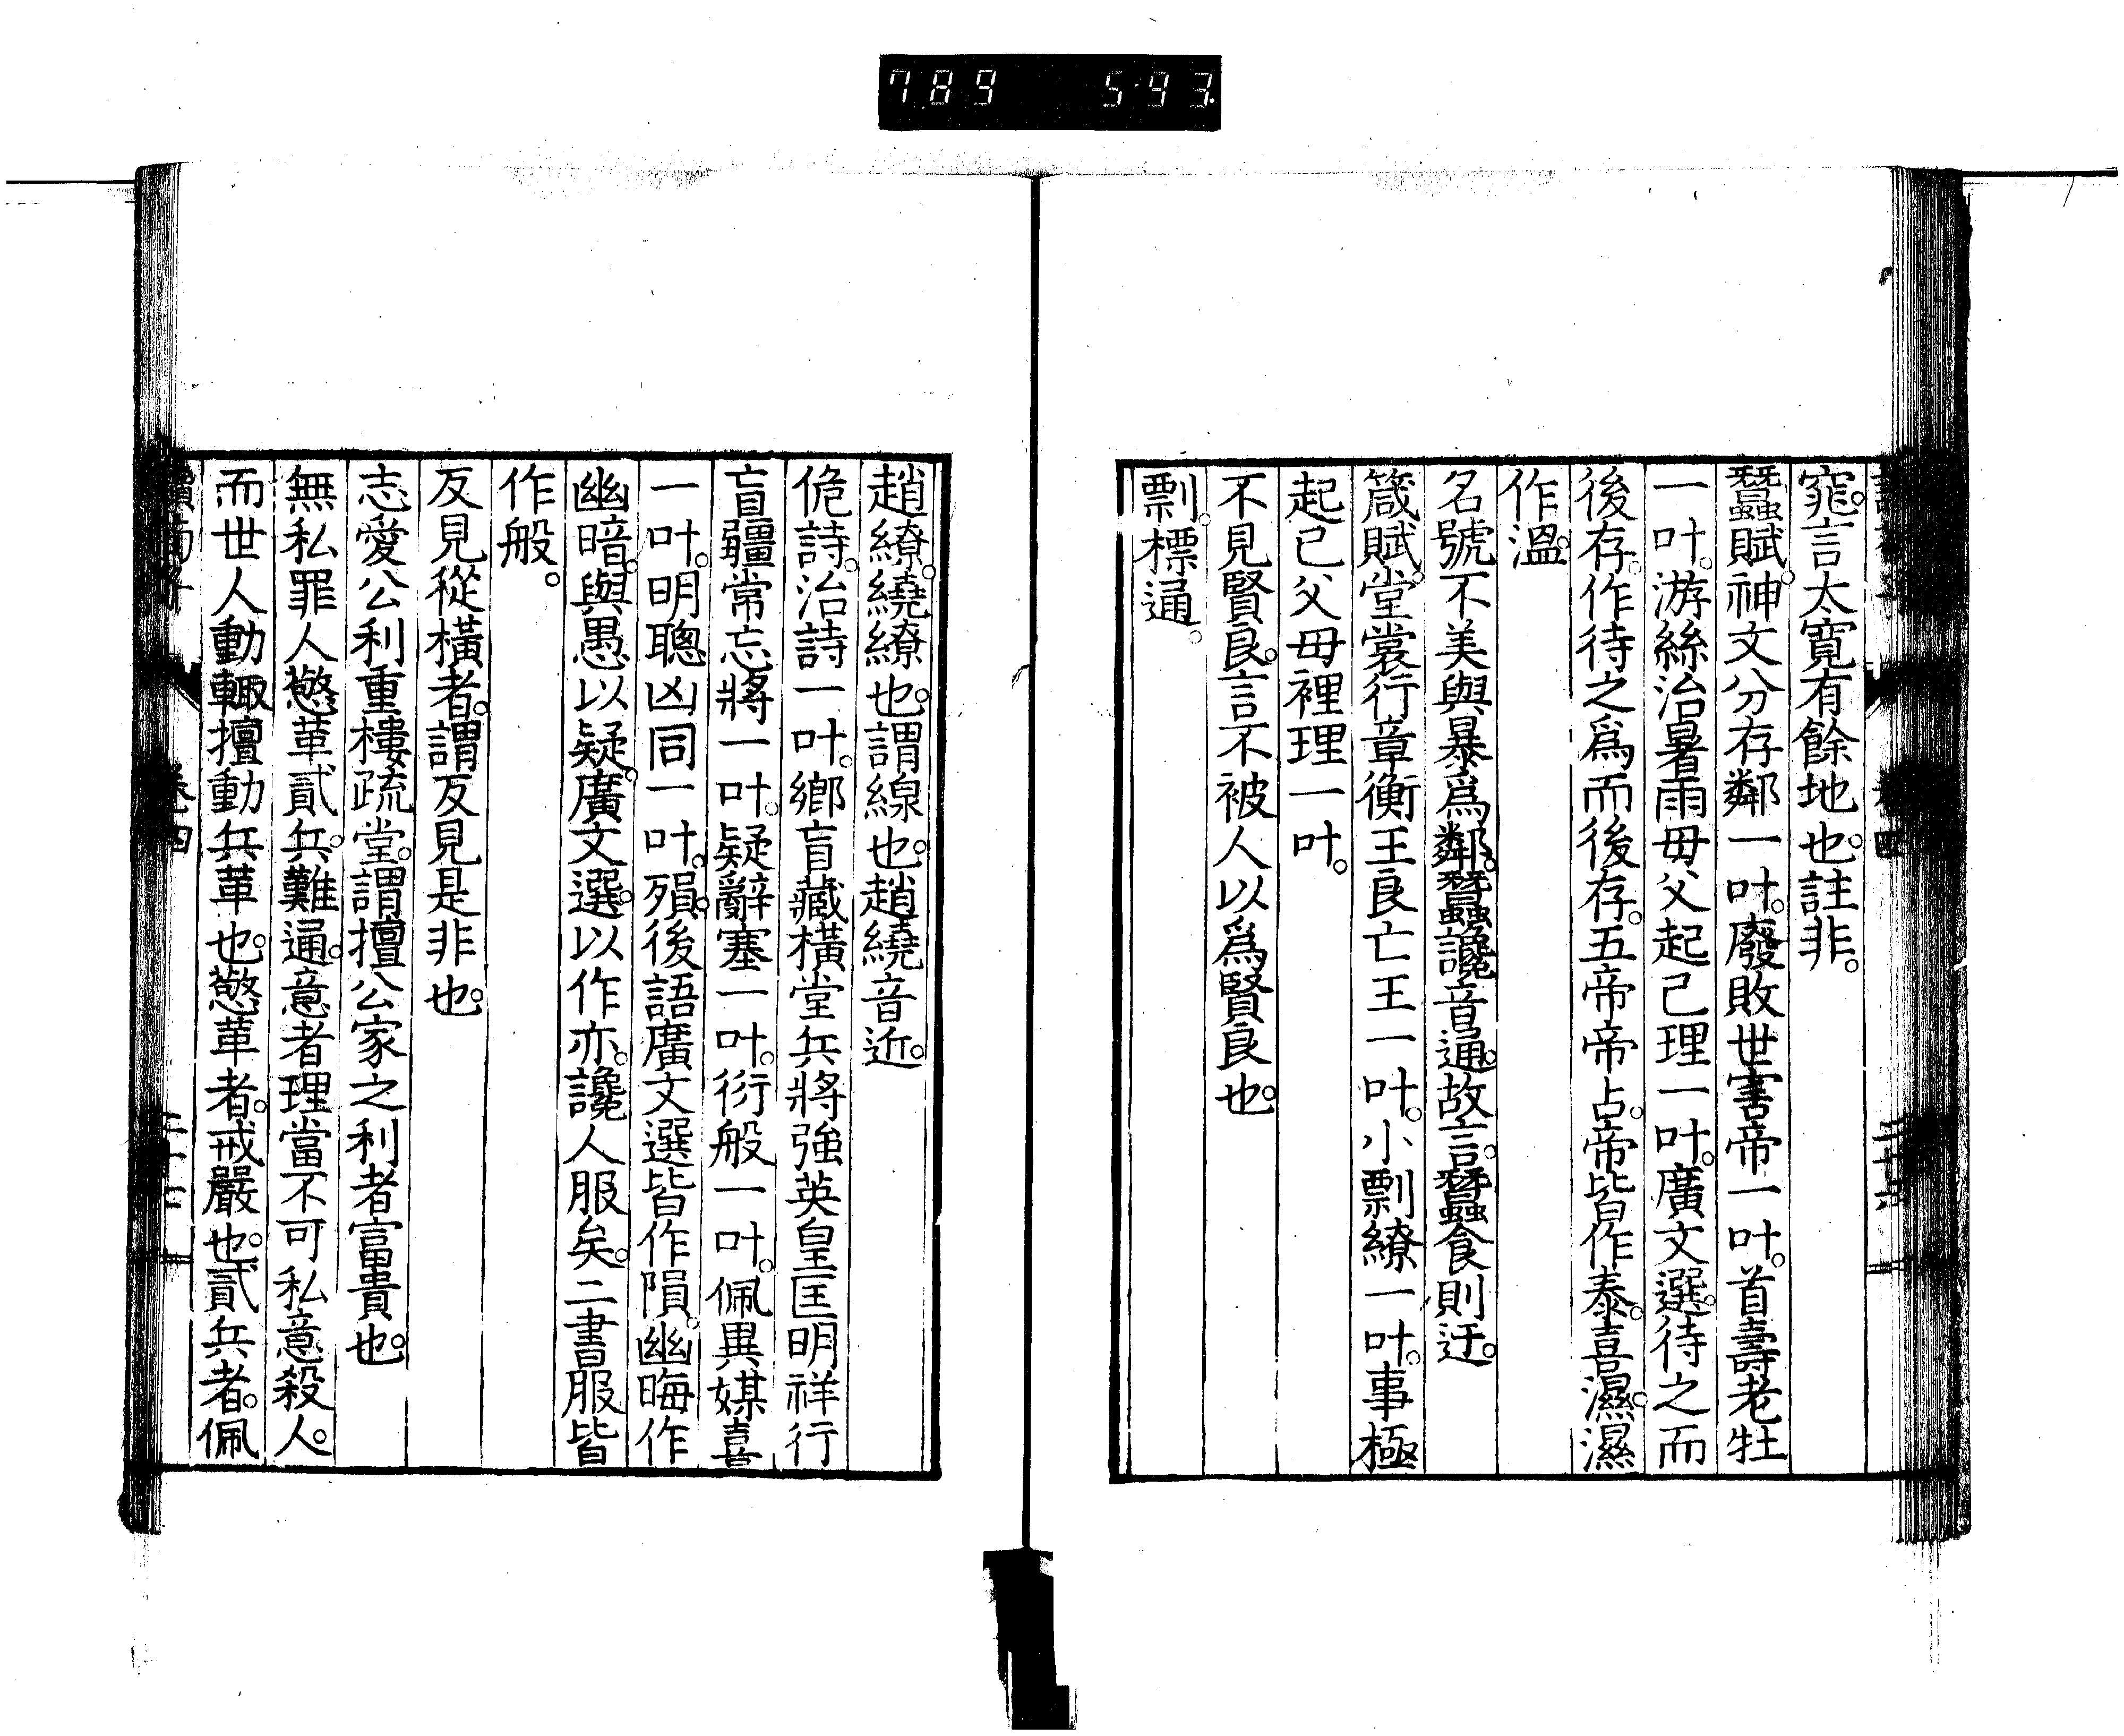 789 593
窕。言太寛有餘地也。註非。
蠶賦。神文分存鄰一叶。廢敗世害帝一叶。首壽老牡
一叶。游絲治暑雨毋父起己理一叶。廣文選。待之而
後存。作待之爲而後存。五帝帝占。帝皆作泰。喜濕。濕
作溫。
名號不美與暴爲鄰。蠶讒音通。故言。蠶食則迂。
箴賦。堂裳行章衡王良亡王一叶。小剽繚一叶。事極
起己父毋裡理一叶。
不見賢良。言不被人以爲賢良也。
剽。標通。
趙繚。繞繚也。謂線也。趙繞音近。
佹詩。治詩一叶。鄉盲藏橫堂兵將強英皇匡明祥行
盲疆常忘將一叶。疑辭塞一叶。衍般一叶。佩異媒喜
一叶。明聰凶同一叶。殞。後語廣文選皆作隕。幽晦作
幽暗。與愚以疑。廣文選。以作亦。讒人服矣。二書服皆
作般。
反見從橫者。謂反見是非也。
志愛公利重樓疏堂。謂擅公家之利者富貴也。
無私罪人憼革貳兵。兵難通。意者理當不可私意殺人。
而世人動輙擅動兵革也。憼革者。戒嚴也。貳兵者。佩
讀荀子 卷四 二十七